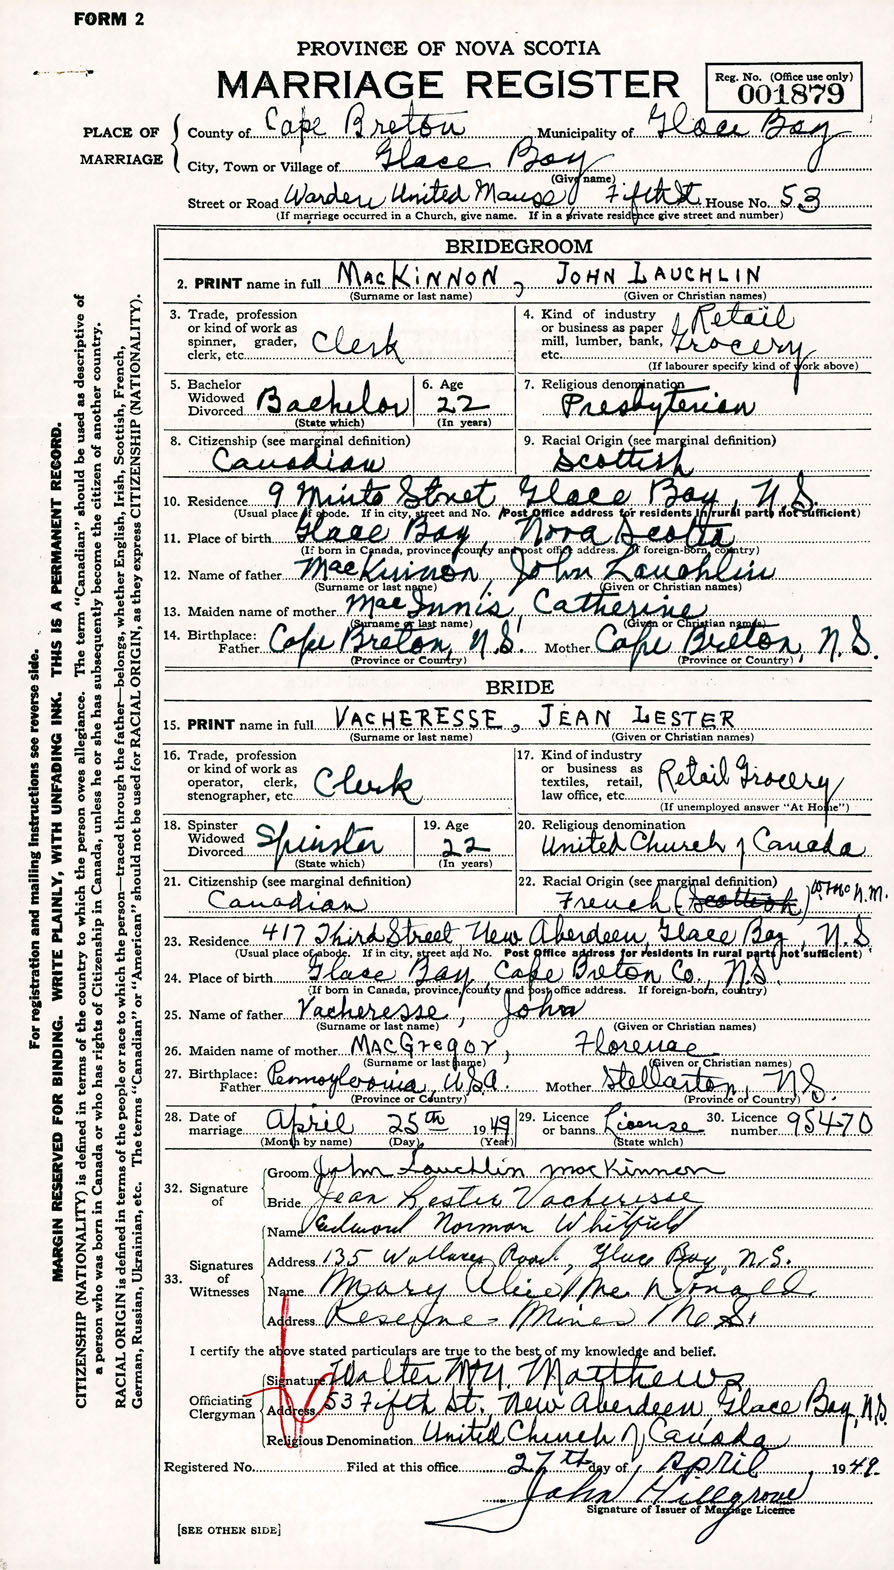 FORM 2
PROVINCE OF NOVA SCOTIA
MARRIAGE REGISTER
Reg. No. (Office use only)
001879
PLACE OF MARRIAGE
County of Cape Breton Municipality of Glace Bay
City, Town or Village of Glace Bay
(Give name)
Street or Road Warden United Manse Fifth St. House No. 53
(If marriage occurred in a Church, give name. If in a private residence give street and number)
BRIDEGROOM
2. PRINT name in full MACKINNON, JOHN LAUCHLIN
(Surname or last name) (Given or Christian names)
3. Trade, profession or kind of work as spinner, grader, clerk, etc. Clerk
4. Kind of industry or business as paper mill, lumber, bank, etc. Retail Grocery
(If labourer specify kind of work above)
5. Bachelor Widowed Divorced Bachelor
(State which)
6. Age 22
(In years)
7. Religious denomination
Presbyterian
8. Citizenship (see marginal definition)
Canadian
9. Racial Origin (see marginal definition)
Scottish
10. Residence 9 Minto Street Glace Bay, N.S.
(Usual place of abode. If in city, street and No. Post Office address for residents in rural parts not sufficient)
11. Place of birth Glace Bay, Nova Scotia
(If born in Canada, province, county and post office address. If foreign-born, country)
12. Name of father MacKinnon, John Lauchlin
(Surname or last name) (Given or Christian names)
13. Maiden name of mother MacInnis, Catherine
(Surname or last name) (Given or Christian names)
14. Birthplace: Father Cape Breton, N.S. Mother Cape Breton, N.S.
(Province or Country) (Province or Country)
BRIDE
15. PRINT name in full VACHERESSE, JEAN LESTER
(Surname or last name) (Given or Christian names)
16. Trade, profession or kind of work as operator, clerk, stenographer, etc. Clerk
17. Kind of industry or business as textiles, retail, law office, etc. Retail Grocery
(If unemployed answer "At Home")
18. Spinster Widowed Divorced Spinster
(State which)
19. Age 22
(In years)
20. Religious denomination
United Church of Canada
21. Citizenship (see marginal definition)
Canadian
22. Racial Origin (see marginal definition)
French (Scottish) W. McN. M.
23. Residence 417 Third Street New Aberdeen, Glace Bay, N.S.
(Usual place of abode. If in city, street and No. Post Office address for residents in rural parts not sufficient)
24. Place of birth Glace Bay, Cape Breton Co., N.S.
(If born in Canada, province, county and post office address. If foreign-born, country)
25. Name of father Vacheresse, John
(Surname or last name) (Given or Christian names)
26. Maiden name of mother MacGregor, Florence
(Surname or last name) (Given or Christian names)
27. Birthplace: Father Pennsylvania, U.S.A. Mother Stellarton, N.S.
(Province or Country) (Province or Country)
28. Date of marriage April 25th 1949
(Month by name) (Day) (Year)
29. Licence or banns License
(State which)
30. Licence number 95470
32. Signature of
Groom John Lauchlin MacKinnon
Bride Jean Lester Vacheresse
33. Signatures of Witnesses
Name Edmond Norman Whitfield
Address 135 Wallaces Road, Glace Bay, N.S.
Name Mary Alice McDonald
Address Reserve Mines N.S.
I certify the above stated particulars are true to the best of my knowledge and belief.
Officiating Clergyman
Signature Walter McN. Matthews
Address 53 Fifth St. New Aberdeen, Glace Bay, N.S.
Religious Denomination United Church of Canada
Registered No. Filed at this office 27th day of April, 1949.
John Hillgrove
Signature of Issuer of Marriage Licence
[SEE OTHER SIDE]
For registration and mailing instructions see reverse side.
MARGIN RESERVED FOR BINDING. WRITE PLAINLY, WITH UNFADING INK. THIS IS A PERMANENT RECORD.
CITIZENSHIP (NATIONALITY) is defined in terms of the country to which the person owes allegiance. The term "Canadian" should be used as descriptive of
a person who was born in Canada or who has rights of Citizenship in Canada, unless he or she has subsequently become the citizen of another country.
RACIAL ORIGIN is defined in terms of the people or race to which the person—traced through the father—belongs, whether English, Irish, Scottish, French,
German, Russian, Ukrainian, etc. The terms "Canadian" or "American" should not be used for RACIAL ORIGIN, as they express CITIZENSHIP (NATIONALITY).